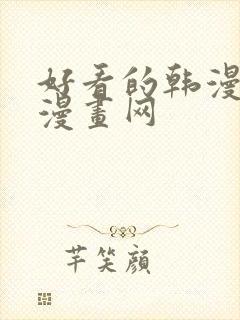 好看的韩漫
漫畫网
芊笑顔